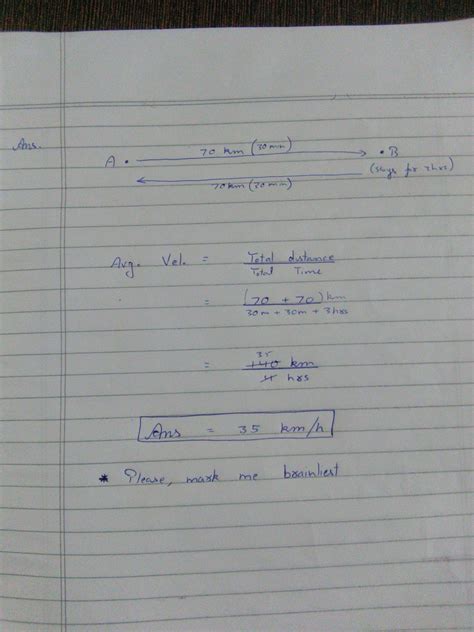 Ans.
A . 70 km (30 min) . B
70 km (30 min) (stays for 3 hrs)
Avg. Vel. = Total distance
Total Time
= (70 + 70) km
30m + 30m + 3hrs
35
= 140 km
4 hrs
Ans = 35 km/h
* Please, mark me brainliest